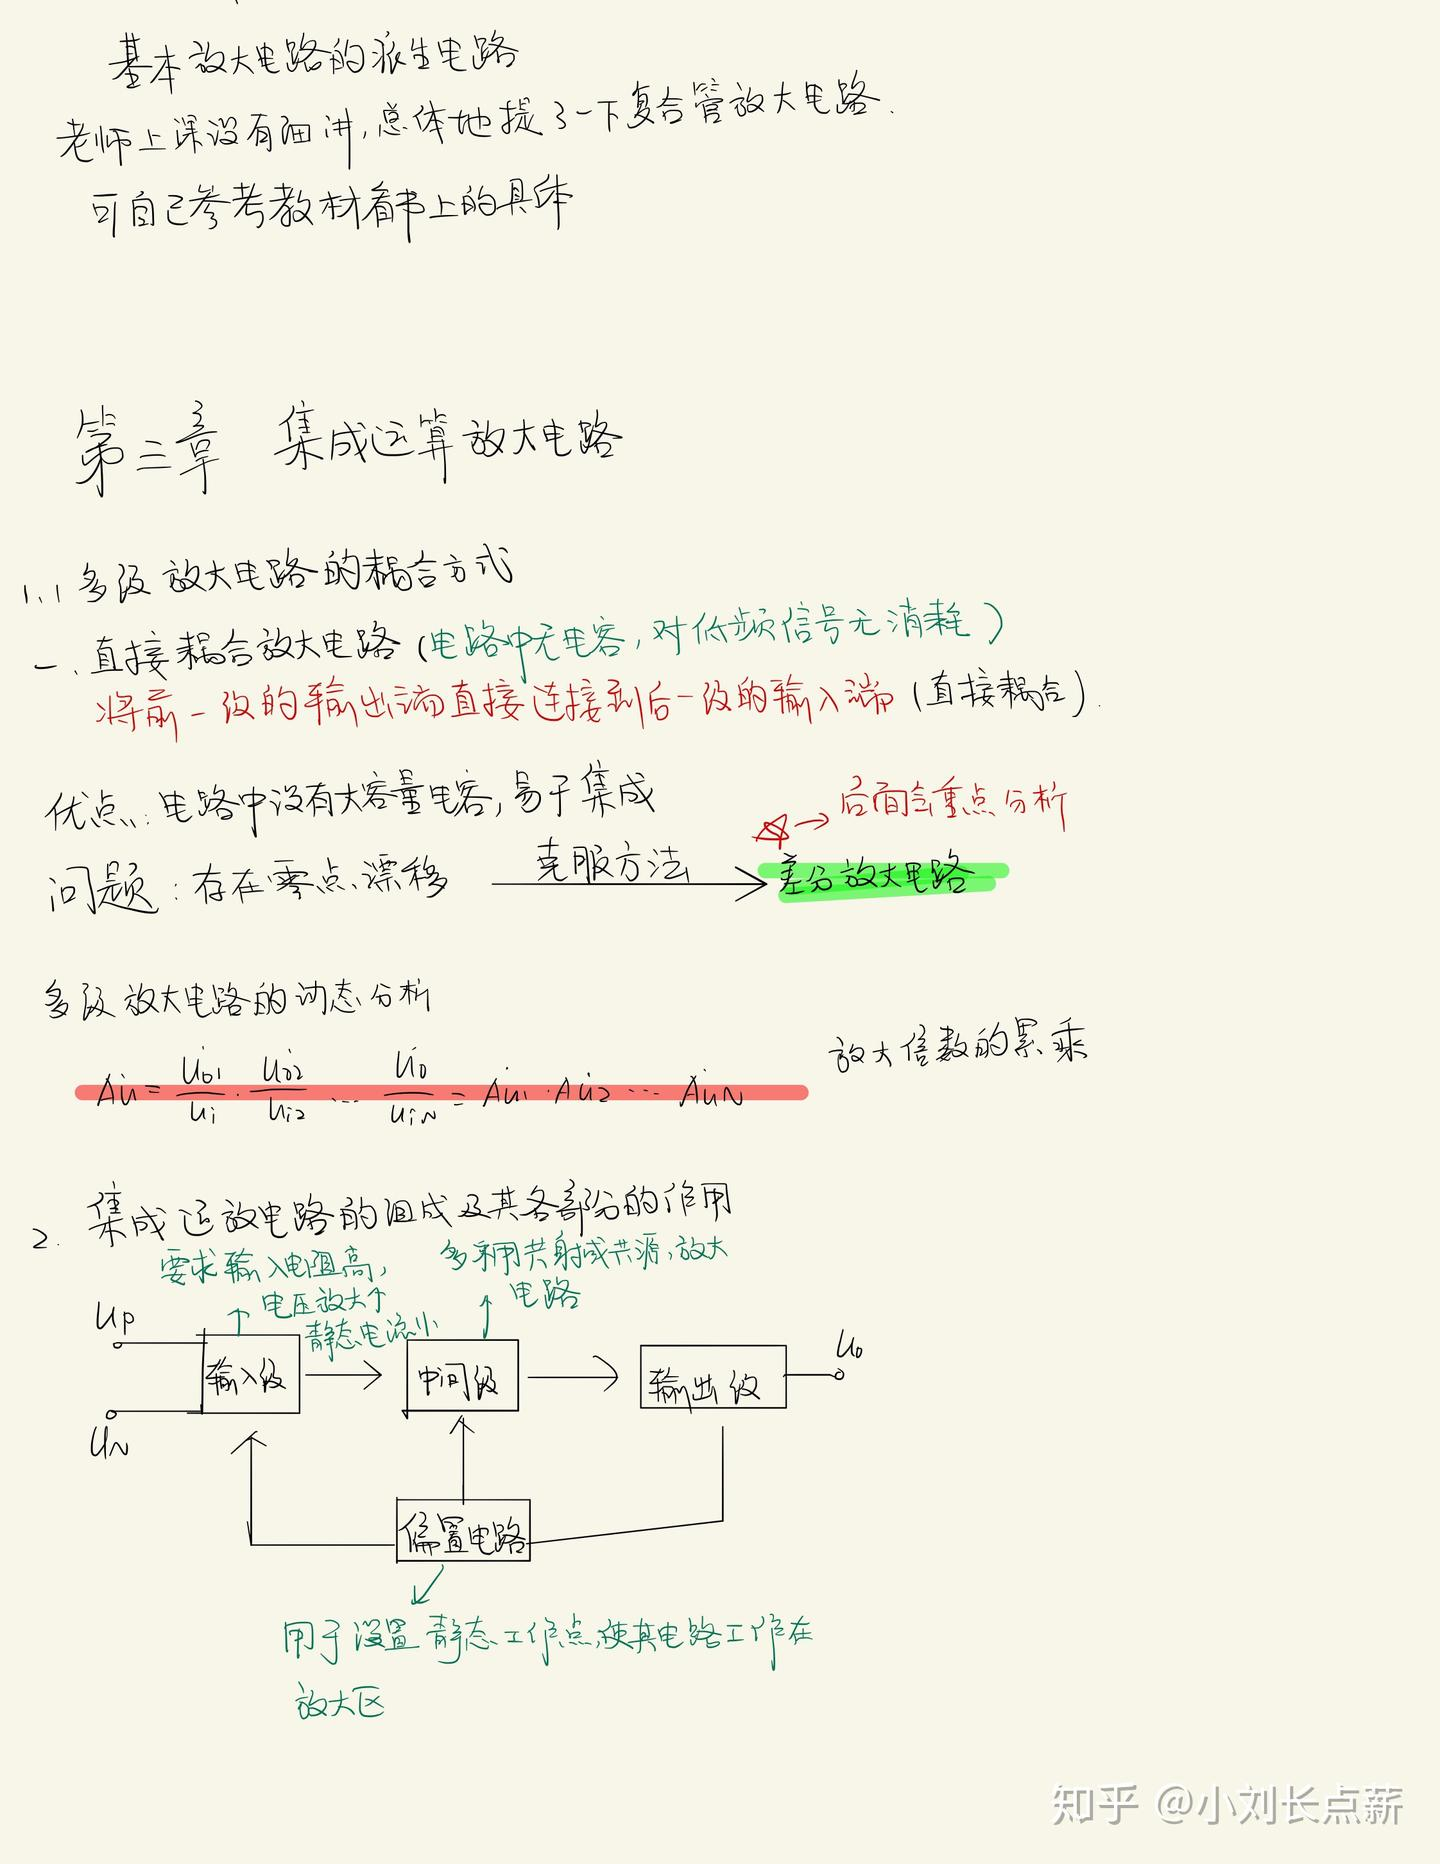 基本放大电路的派生电路
老师上课没有细讲,总体地提了一下复合管放大电路.
可自己参考教材看书上的具体
第三章 集成运算放大电路
1.1 多级放大电路的耦合方式
一.直接耦合放大电路(电路中无电容,对低频信号无消耗)
将前一级的输出端直接连接到后一级的输入端(直接耦合).
优点:电路中没有大容量电容,易于集成
☆→后面会重点分析
问题:存在零点漂移 克服方法 差分放大电路
多级放大电路的动态分析
放大倍数的累乘
Ȧu = U̇o1/U̇i · U̇o2/U̇i2 ... U̇o/U̇iN = Ȧu1 · Ȧu2 ... ȦuN
2. 集成运放电路的组成及其各部分的作用
要求输入电阻高, 多采用共射或共源放大
电压放大↑ 电路
静态电流小
UP
Uo
输入级 → 中间级 → 输出级
UN
偏置电路
用于设置静态工作点,使其电路工作在
放大区
知乎 @小刘长点薪